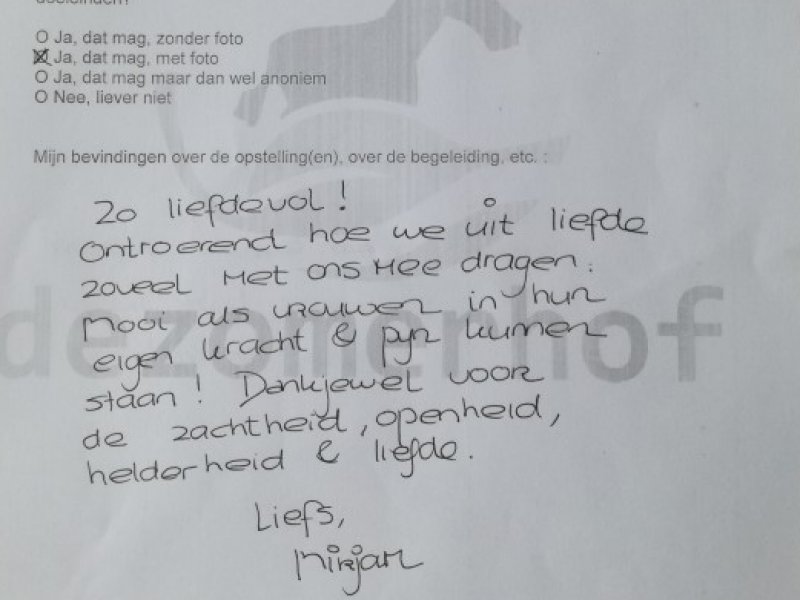 O Ja, dat mag, zonder foto
O Ja, dat mag, met foto
O Ja, dat mag maar dan wel anoniem
O Nee, liever niet
Mijn bevindingen over de opstelling(en), over de begeleiding, etc. :
Zo liefdevol!
Ontroerend hoe we uit liefde
zoveel met ons mee dragen.
Mooi als vrouwen in hun
eigen kracht & pijn kunnen
staan! Dankjewel voor
de zachtheid, openheid,
helderheid & liefde.
Liefs,
Mirjam
dezomerhof